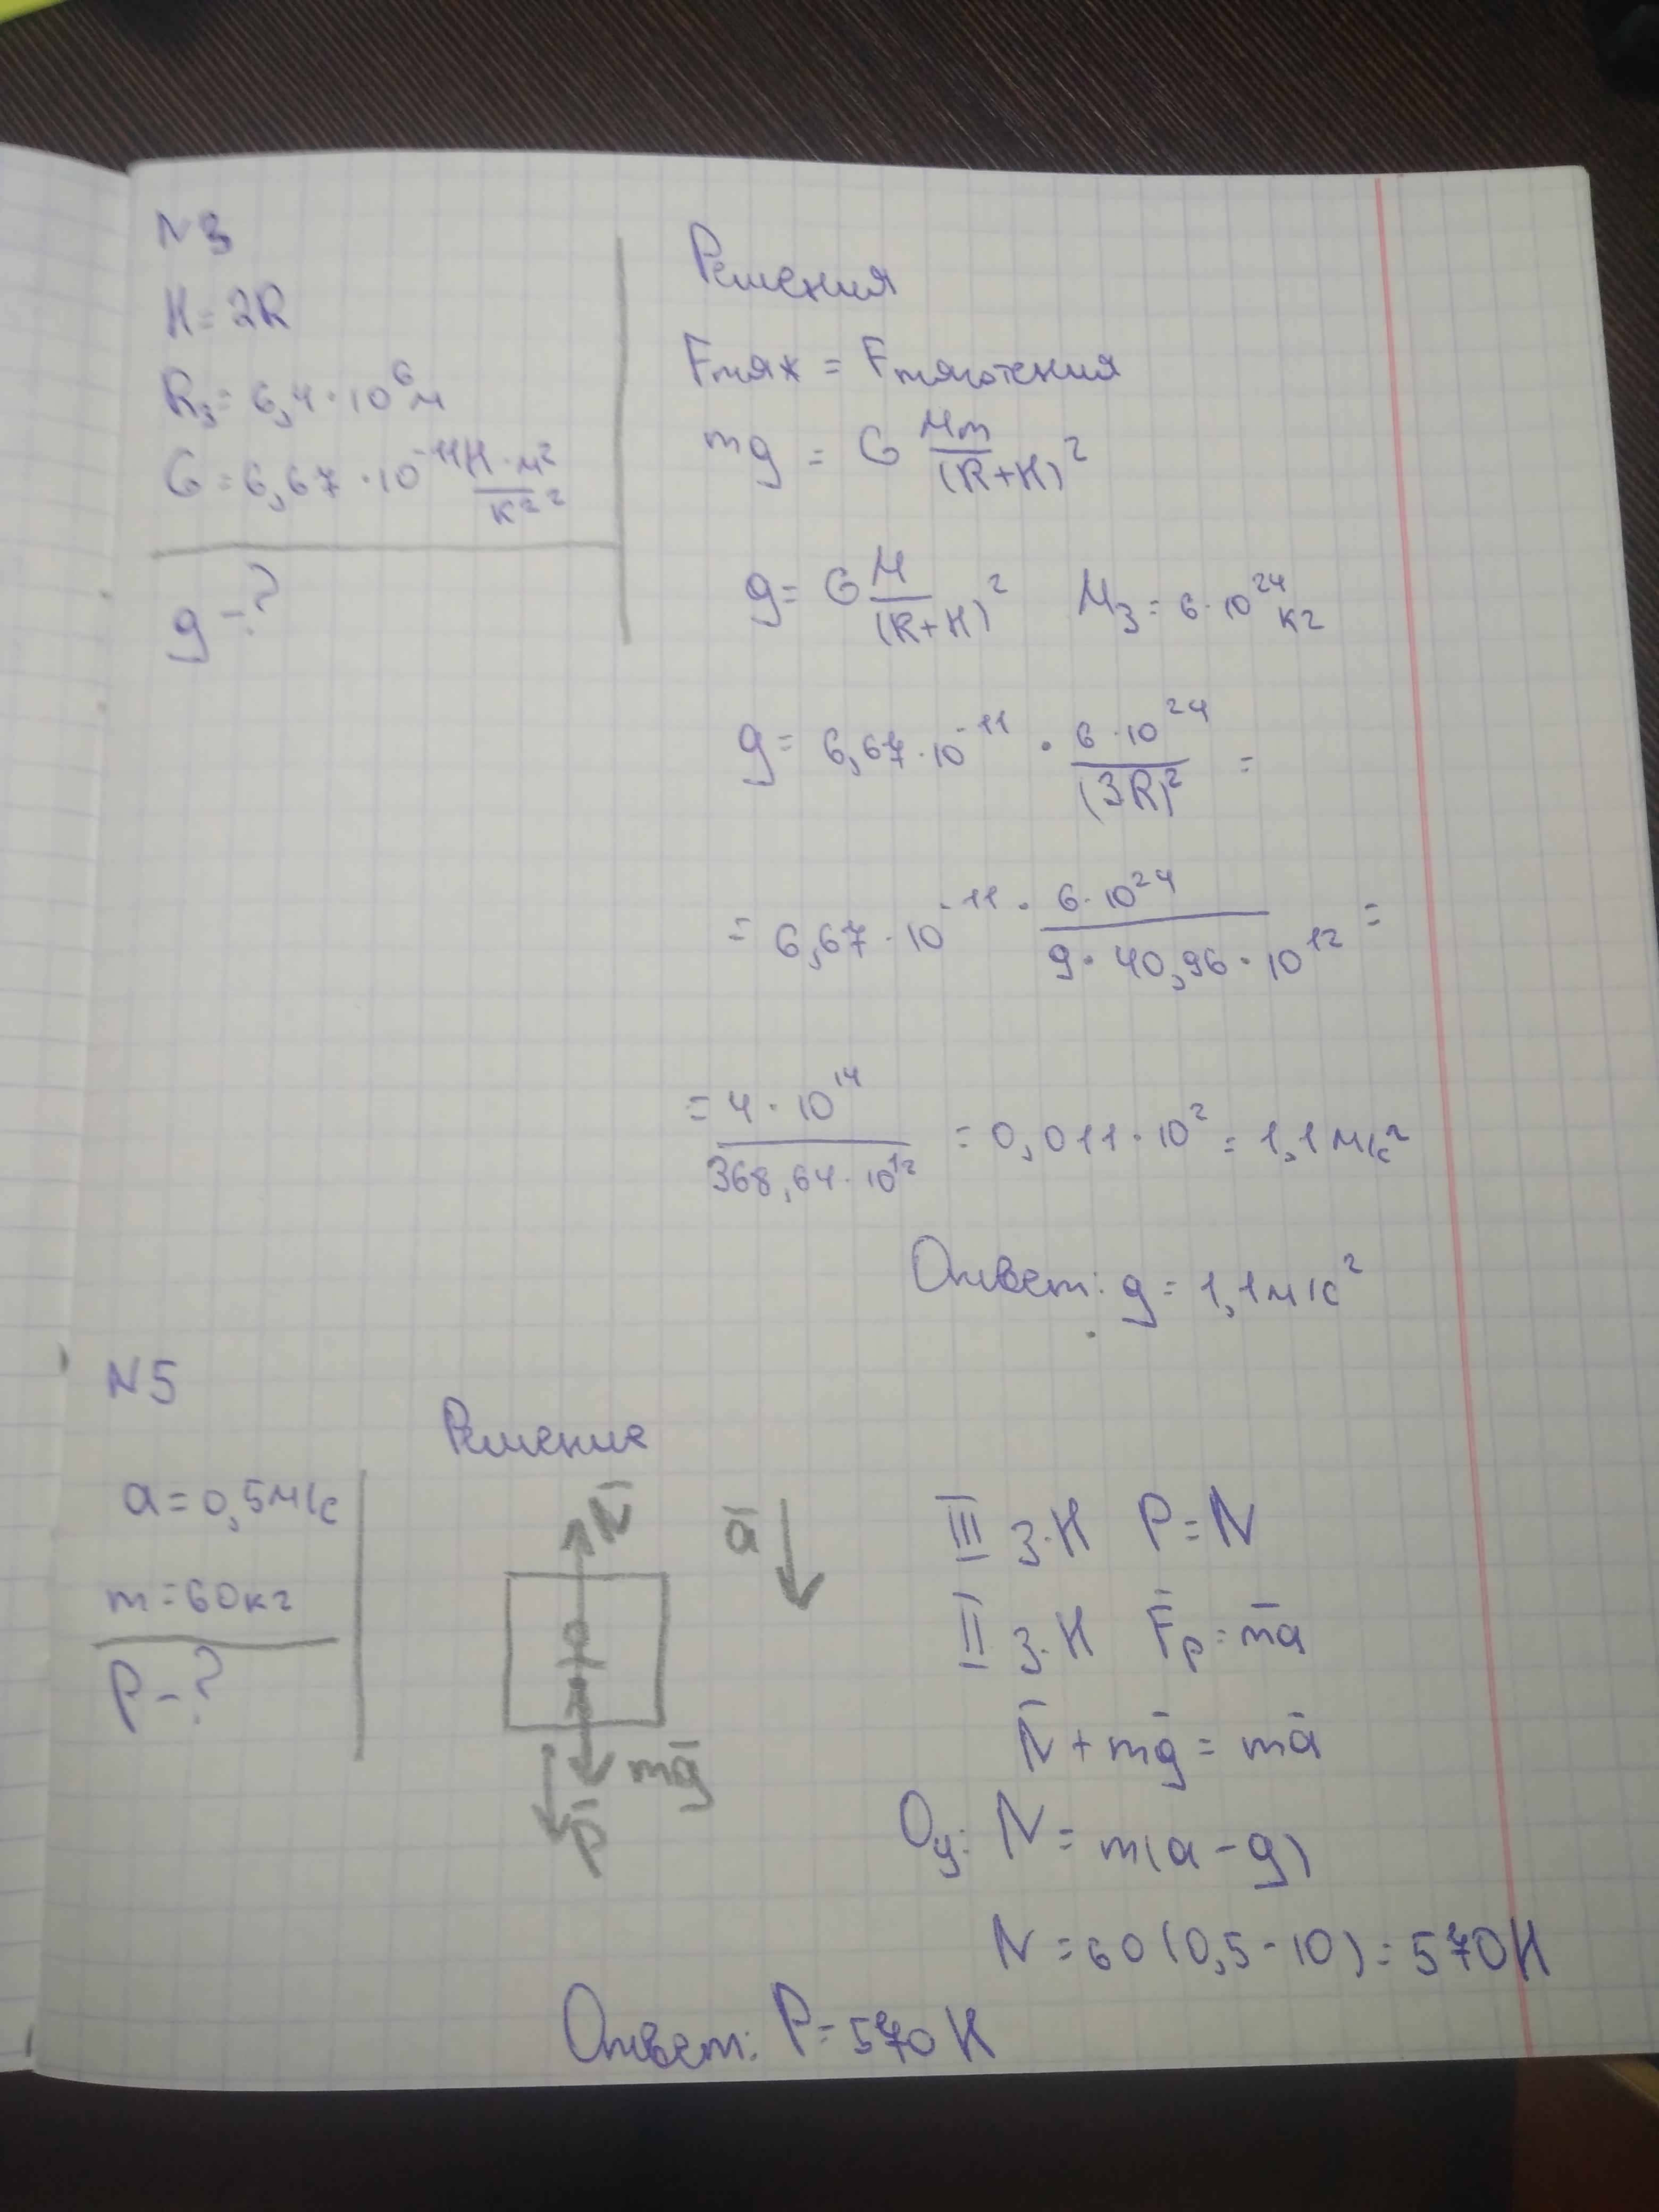 N3
H = 2R
R₃ = 6,4 · 10⁶ м
G = 6,67 · 10⁻¹¹ Н · м² / кг²
g - ?
Решения
Fтяж = Fтяготения
mg = G Mm / (R+H)²
g = G M / (R+H)² M₃ = 6 · 10²⁴ кг
g = 6,67 · 10⁻¹¹ · 6 · 10²⁴ / (3R)² =
= 6,67 · 10⁻¹¹ · 6 · 10²⁴ / 9 · 40,96 · 10¹² =
= 4 · 10¹⁴ / 368,64 · 10¹² = 0,011 · 10² = 1,1 м/с²
Ответ: g = 1,1 м/с²
N5
a = 0,5 м/с
m = 60 кг
P - ?
Решение
N̄
ā
mḡ
P̄
III з.Н P = N
II з.Н F̄р = mā
N̄ + mḡ = mā
Оy: N = m(a - g)
N = 60 (0,5 - 10) = 570 Н
Ответ: P = 570 Н